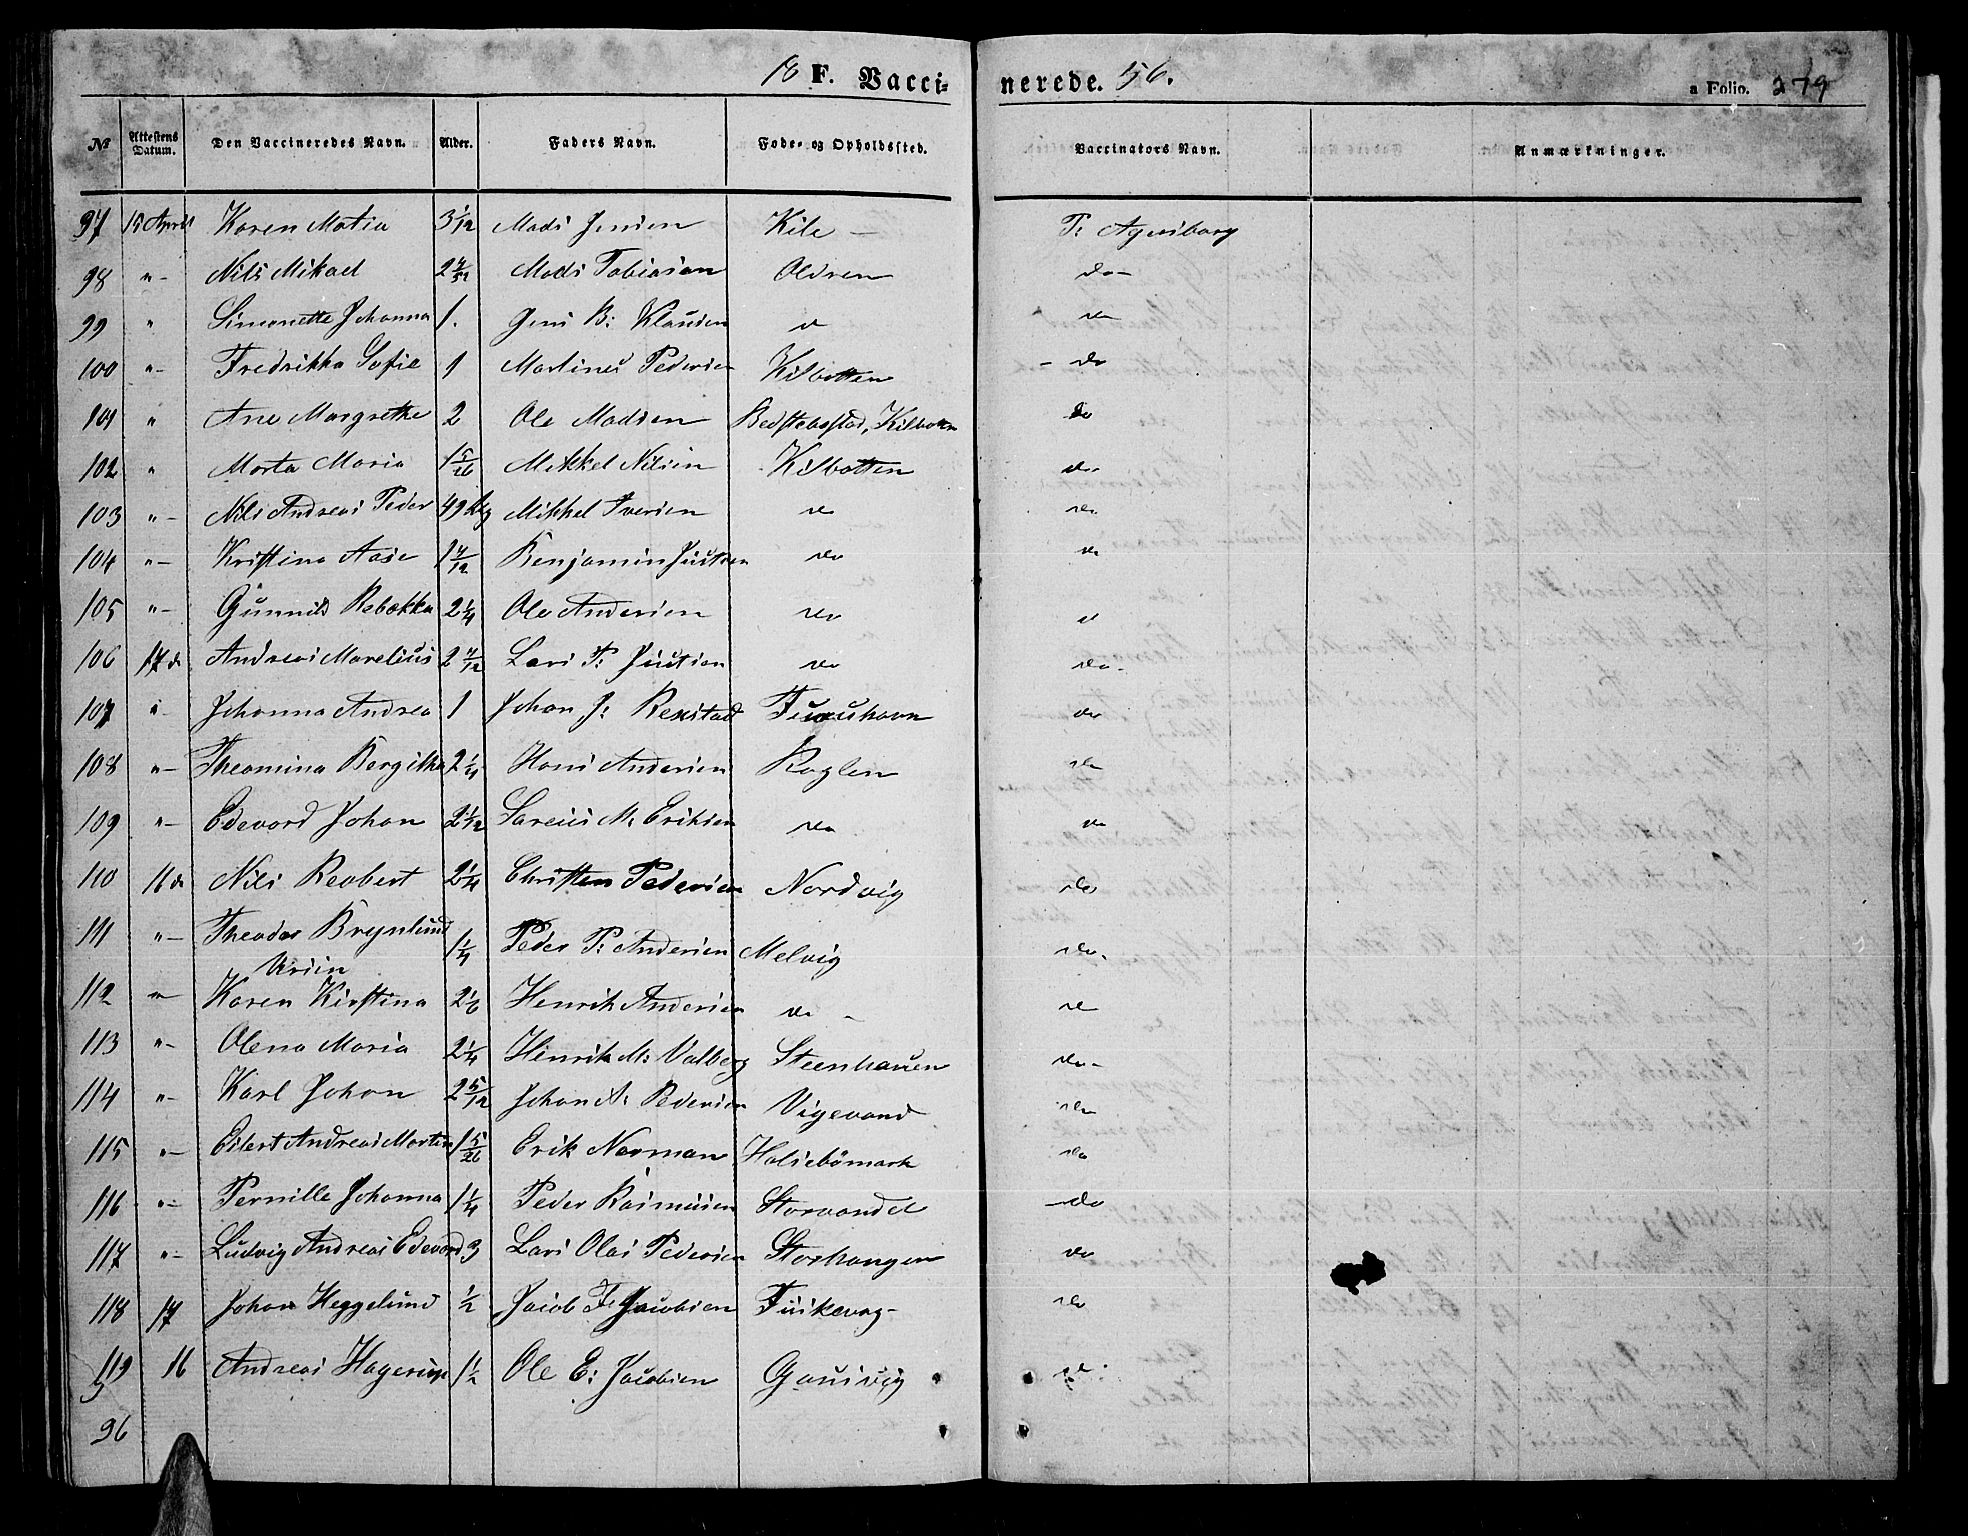 18 F. Vacci- nerede. 56. a Folio. 279
No Attestens Datum. Den Vaccineredes Navn. Alder. Faders Navn. Føde- og Opholdssted. Vaccinators Navn. Anmærkninger.
97 15 April Karen Matia 3 1/12 Mads Jensen Kile - P: Agersborg
98 "- Nils Mikael Mads Tobiassen Oldren do-
99 " Simonette Johanna 1. Jens B: Klausen do do
100 "- Fredrikka Sofie 1 Martines Pedersen Kilbotten - do
101 " Ane Margrethe 2 Ole Madsen Kilbotn do
102 " Marta Maria Mikkel Nilsen Kilbotten do
103 "- Nils Andreas Peder 49 Mikkel Iversen do do
104 "- Kristina Aase Benjamin Justsen do do
105 "- Gunnild Rebekka 2 1/4 Ole Andersen do do
106 17 do Andreas Marelius Lars P: Justsen do do-
107 "- Johanna Andrea 1 Johan J: do
108 "- Theomina Bergitha 2 1/4 Hans Andersen Røglen do
109 "- Edevard Johan 2 1/12 Sareius M: Eriksen do do
110 16 do Nils Reobert 2 1/4 Christen Pedersen Nordvig do
111 "- Theodor Brynlund 1 1/4 Peder P: Andersen Melvig do.
112 "- Karen Kirstina 2 1/6 Henrik Andersen do - do
113 "- Olena Maria 2 1/4 Hinrik M: Valberg Steenhauen do-
114 "- Karl Johan 2 5/12 Johan A: Pedersen Vigevand do
115 "- Eilert Andreas Martin Erik Norman do
116 "- Pernille Johanna 1 1/4 Peder Rasmusen Storvandet do
117 "- Ludvig Andreas Edevard 3 Lars Olai Pedersen Storhaugen do
118 17 Johan Heggelund 1/2 Jacob F: Jacobsen Fuskevaag- do
119 16 Andreas Hagerup 1 1/2 Ole E: Jacobsen Gausvig do
96